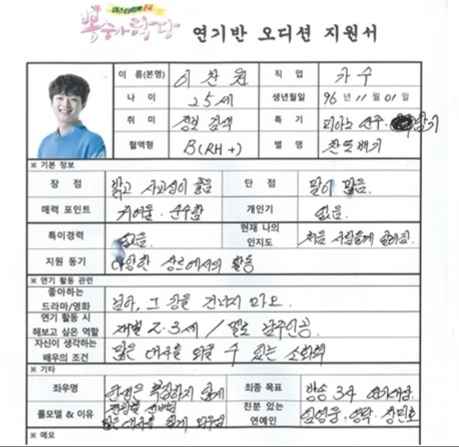 미스터트롯 F4
뽕숭아학당 연기반 오디션 지원서
이 름(본명) 이찬원 직 업 가수
나 이 25세 생년월일 96년 11월 01일
취 미 정보 검색 특 기 피아노 연주,
혈액형 B(RH+) 별 명 찬또배기
※ 기본 정보
장 점 밝고 사교성이 좋음 단 점 말이 많음.
매력 포인트 귀여움·순수함 개인기 없음.
특이경력 없음. 현재 나의 인지도
지원 동기 다양한 장르에서의 활동
※ 연기 활동 관련
좋아하는 드라마/영화 님아, 그 강을 건너지 마오.
연기 활동 시 해보고 싶은 역할 재벌 2·3세 / 멜로 남주인공
자신이 생각하는 배우의 조건 많은 대사를 외울 수 있는
※ 기타
좌우명 최종 목표 방송 3사 연예대상
롤모델 & 이유 친분 있는 연예인 임영웅·영탁·장민호
※ 메모